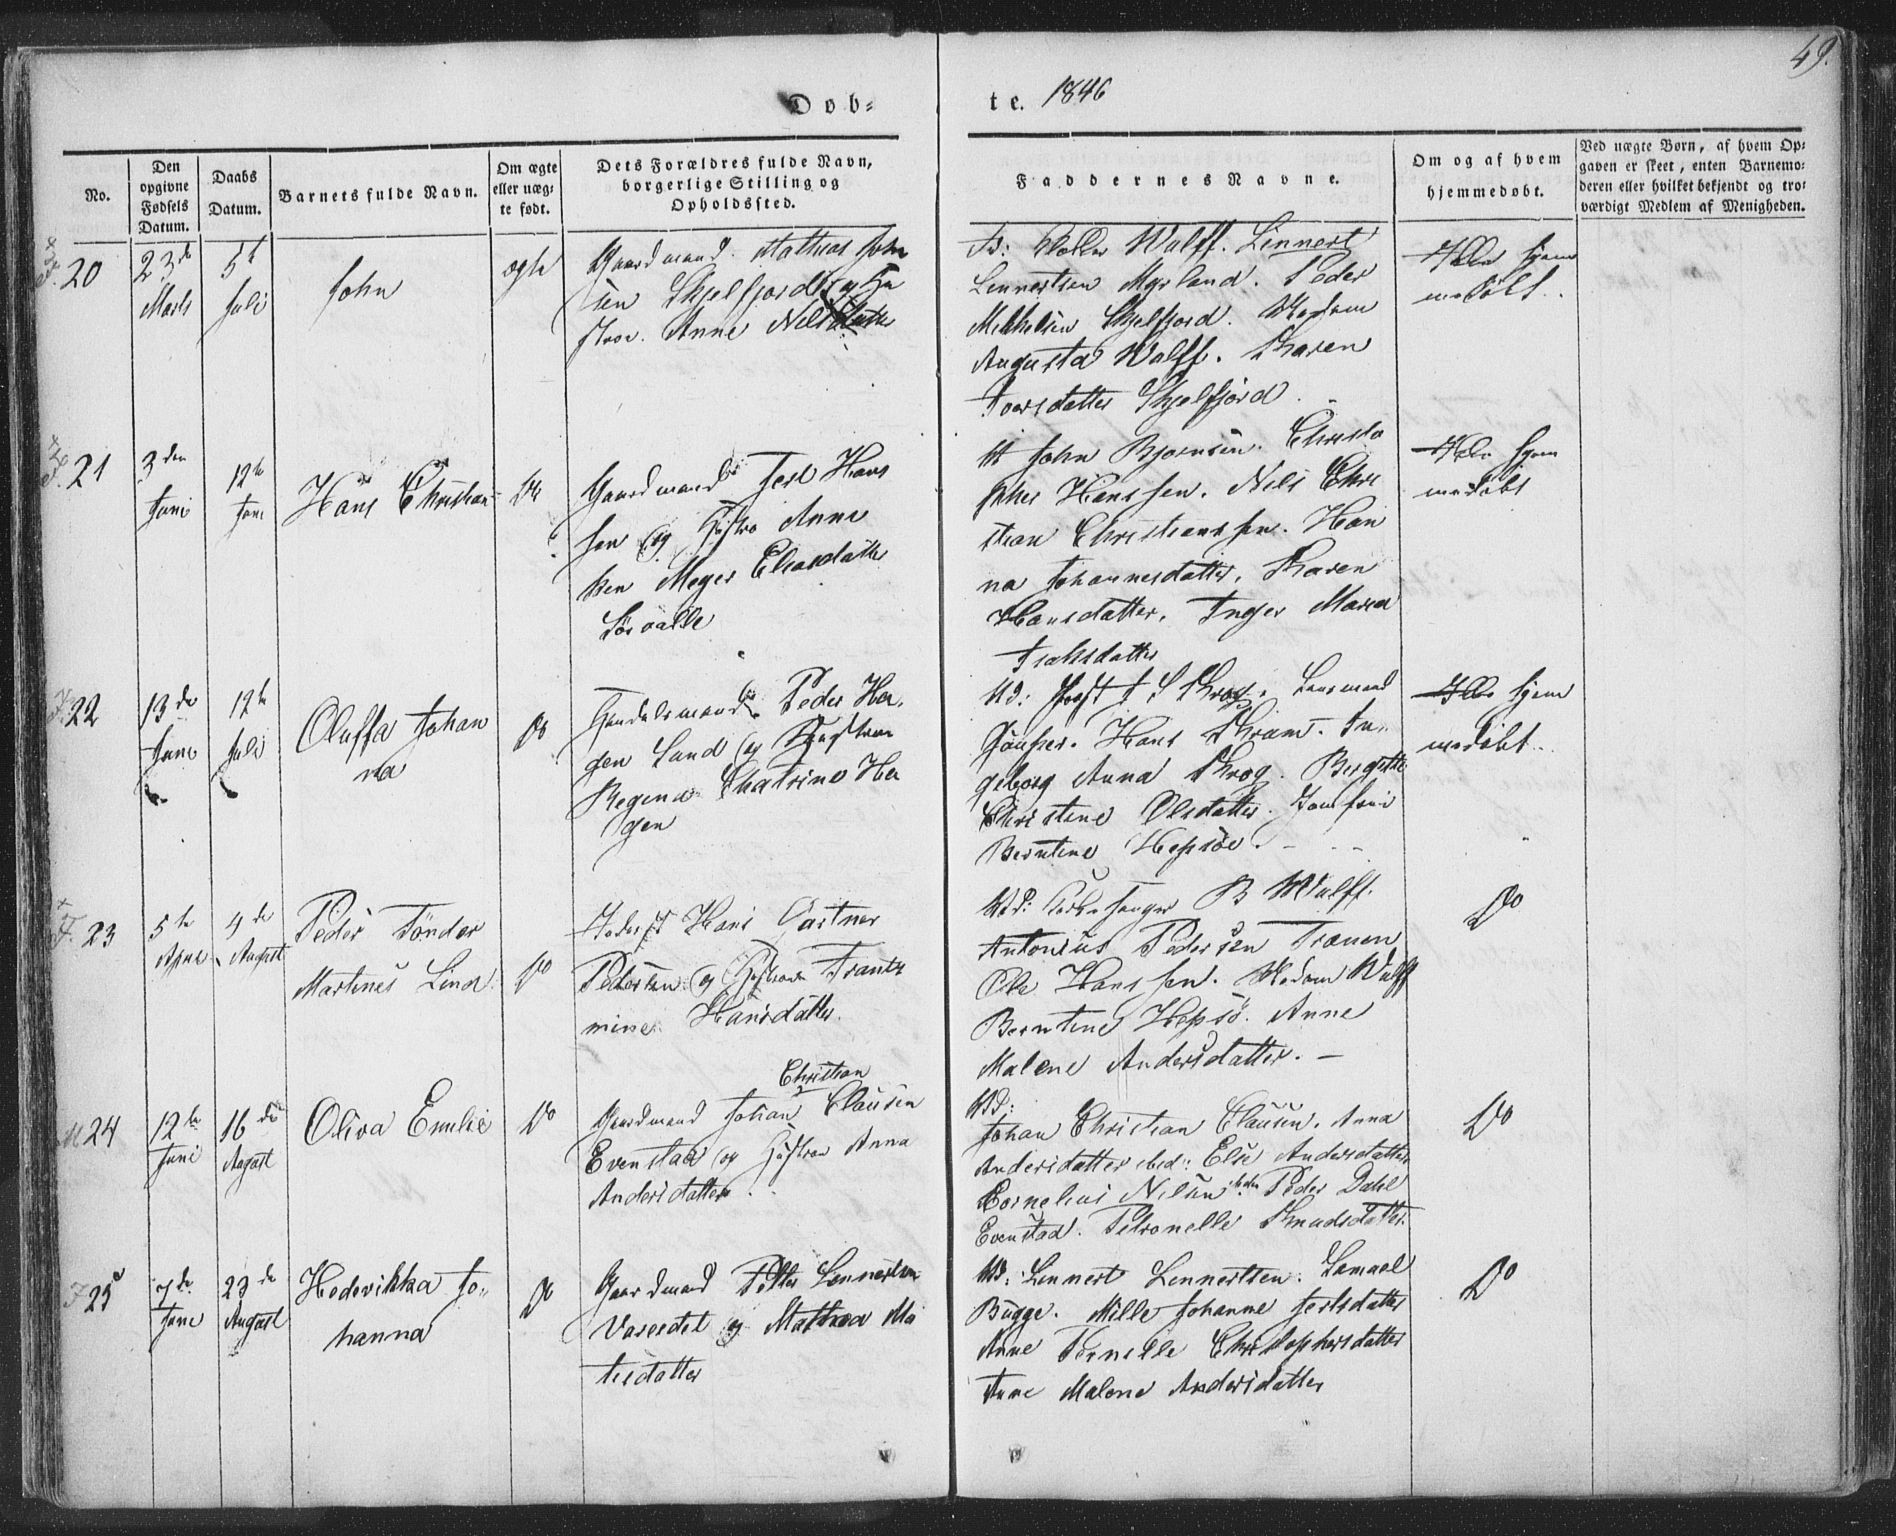 49.
Døb-
te. 1846
No.
Den
opgivne
Fødsels
Datum.
Daabs
Datum.
Barnets fulde Navn.
Om ægte
eller uæg-
te født.
Dets Forældres fulde Navn,
borgerlige Stilling og
Opholdssted.
Faddernes Navne.
Om og af hvem
hjemmedøbt.
Ved uægte Børn, af hvem Op-
gaven er skeet, enten Barnemo-
deren eller hvilket bekjendt og tro-
værdigt Medlem af Menigheden.
20
23de
Marts
5t
Juli
John
ægte
Gaardmand Mathias John
sen Skjelfjord og Hu
stroe Anne Nilsdatter
Wulff. Lennert
Lennertsen Myrland. Peder
Mikkelsen Skjelfjord. Madam
Augusta Wulff. Karen
Iversdatter Skjelfjord.
hjem
medøbt.
21
3den
Juni
12te
Juni
Hans Christian
Do
Gaardmand Jest Hans
sen og Hustro Anne
ken Meyer Eliasdatter
John Bjørnsen. Christo
pher Hanssen. Nils Chri
stian Christianssen. Han
na Johannesdatter. Karen
Hansdatter. Inger Maria
Isaksdatter
hjem
medøbt
22
13de
Juni
12te
Juli
Oluffa Johan
na
Do
Handelsmand Peder Ha
gen Lund og Hustroe
Regina Chatrine Ha
gen
Krog. Lensmand
Hans Kram. In-
geborg Anna Krog. Bergitte
Christine Olsdatter. Jomfrue
Berntine Hepsøe.
hjem
medøbt.
23
5te
April
4de
August
Peder Tønder
Martinus Lind
Do
Hans Gartner
Pedersen og Hustroe Frants
mine Hansdatter.
Kirkesanger B Wulff.
Antonius Pedersen Trænen
Ole Hanssen. Madam Wulff
Berntine Hepsø. Anne
Malene Andersdatter. —
Do
24
12te
Juni
16de
August
Oliva Emilie
Do
Christian
Gaardmand Johan Clausen
Evenstad og Hustroe Anna
Andersdatter.
Johan Christian Clausen. Anna
Andersdatter ibid: Else Andersdatter
Cornelius Nilsen ibidm Peder Dahl
Evenstad. Petronelle Knudsdatter.
Do
25
7de
Juni
23de
August
Hedevikka Jo-
hanna
Do
Gaardmand Petter Lennertsen
Vareidet og Mathea Ma
tisdatter
Lennert Lennertsen. Samuel
Bugge. Mille Johanne Jertsdatter
Anne Pernille Christophersdatter
Anne Malene Andersdatter
Do